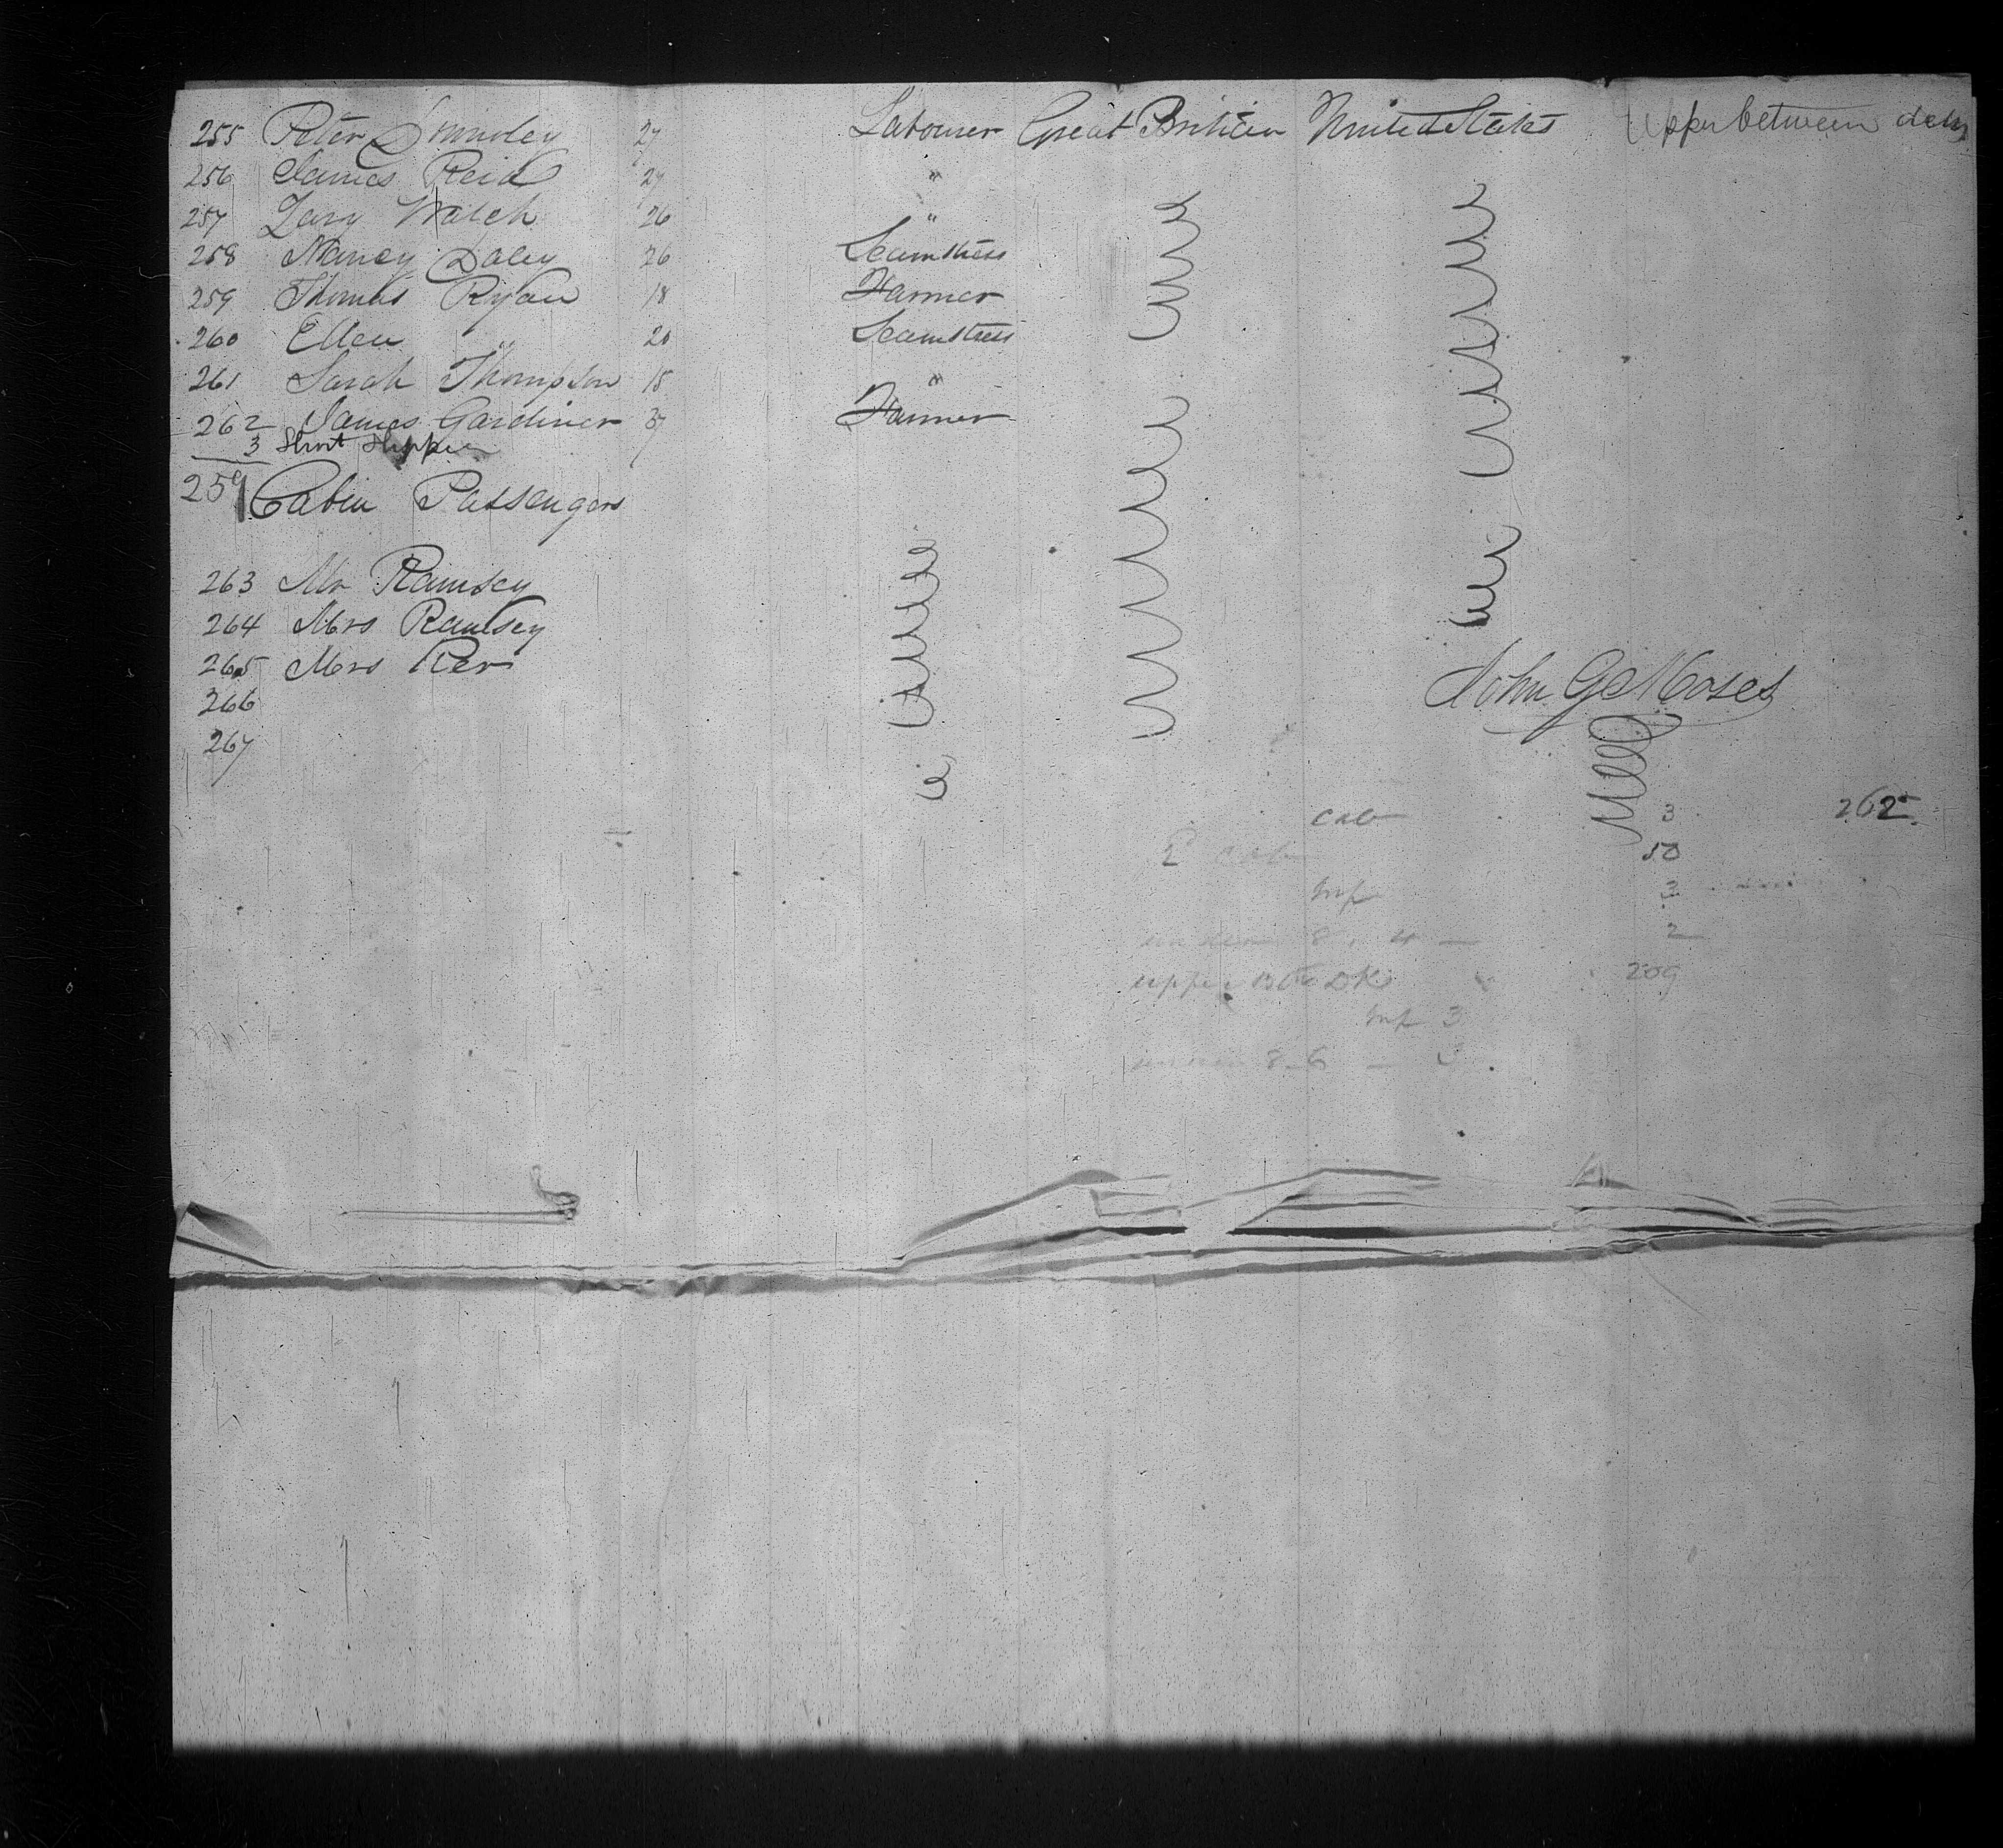 255 Peter 27 Labourer Great Britian United States Upper between deck
256 James Reid 27 "
257 Walsh 26 "
258 Nancy Daley 26 Seamstress
259 Thomas Ryan 18 Farmer
260 Ellen " 20 Seamstress
261 Sarah Thompson 18 "
262 James Gardiner 37 Farmer
3 Short Shipped
259
Cabin Passengers
263 Mr Ramsey
264 Mrs Ramsey
265 Mrs Ker
266
267
John G Moses
cab 3 262
2d cab 50
Inf 3
under 8 . 4 — 2
upper Btw DK 209
Inf 3
under 8 6 — 3